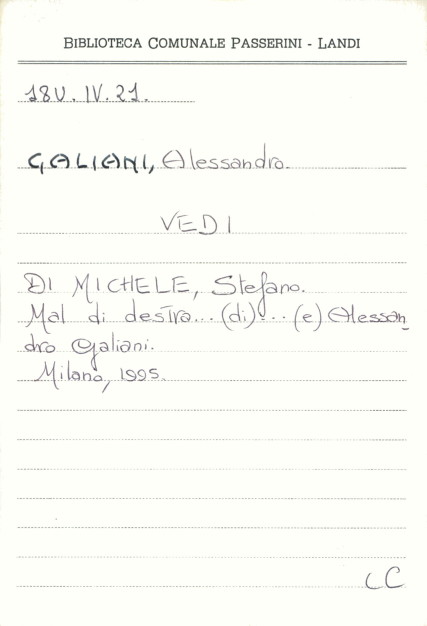 BIBLIOTECA COMUNALE PASSERINI - LANDI
18U. IV. 21.
GALIANI, Alessandro.
VEDI
DI MICHELE, Stefano.
Mal di destra... (di)... (e) Alessan-
dro Galiani.
Milano, 1995.
CC